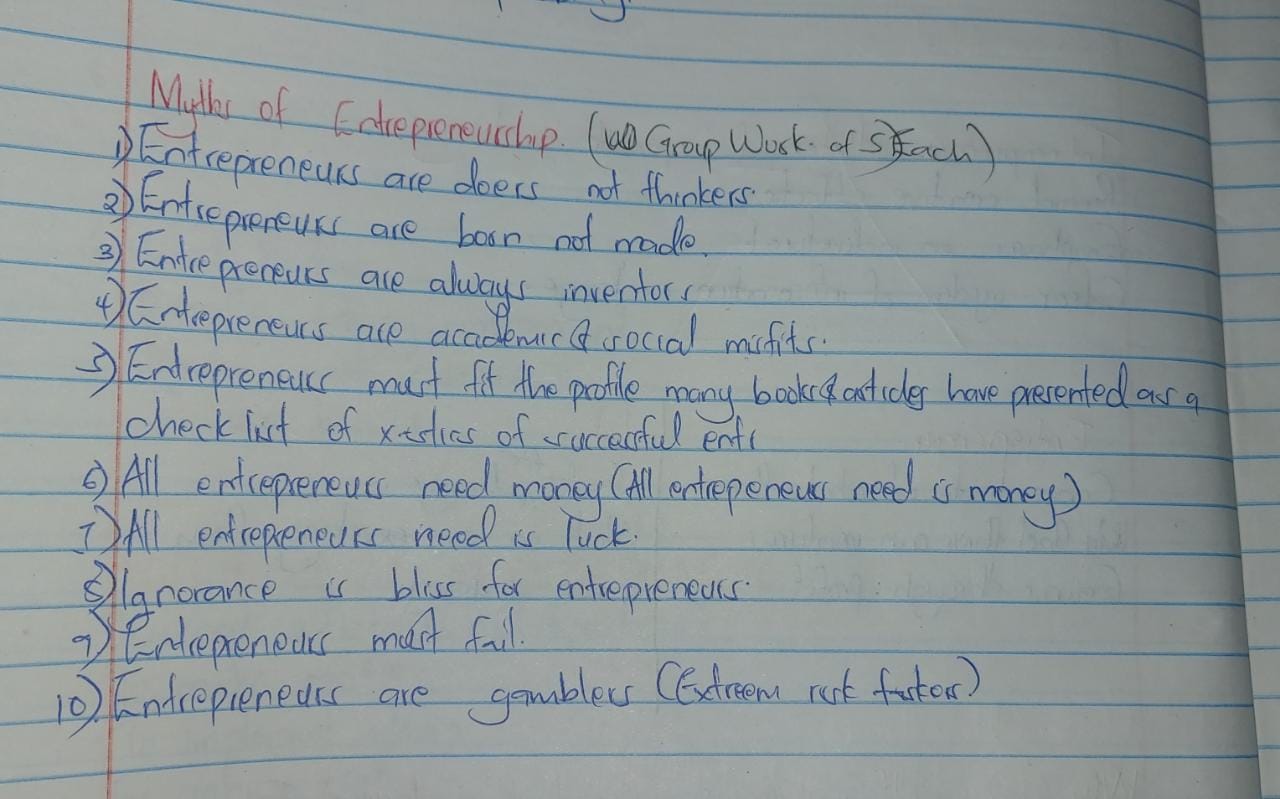 Myths of Entrepreneurship. (Group Work. of 5 Each)
1) Entrepreneurs are doers not thinkers.
2) Entrepreneurs are born not made.
3) Entrepreneurs are always inventors
4) Entrepreneurs are academic & social misfits.
5) Entrepreneurs must fit the profile many books & articles have presented as a
check list of x-stics of successful entr
6) All entrepreneurs need money (All entrepeneurs need is money)
7) All entrepreneurs need is luck.
8) Ignorance is bliss for entrepreneurs.
9) Entrepreneurs must fail.
10) Entrepreneurs are gamblers (Extreem risk)